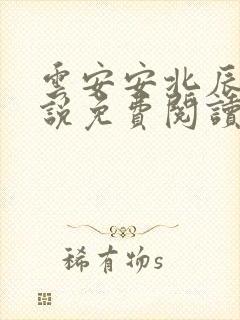 雲安安北辰
說免費閱讀
稀有物s